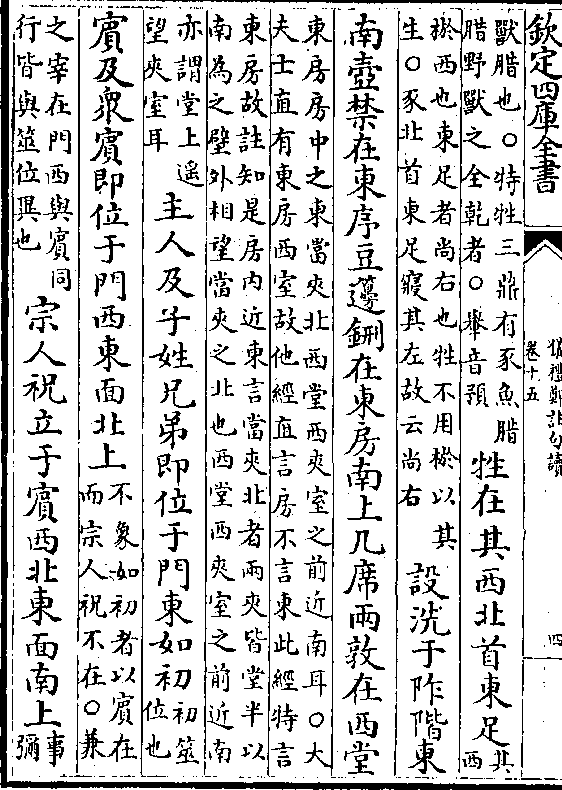 欽定四庫全書
儀禮鄭註句讀
卷十五
四
獸腊也○特牲三鼎有豕魚腊
腊野獸之全乾者○舉音預
牲在其西北首東足
其
西
棜西也東足者尚右也牲不用棜以其
生○豕北首東足寢其左故云尚右
設洗于阼階東
南壺禁在東序豆籩鉶在東房南上几席兩敦在西堂
東房房中之東當夾北西堂西夾室之前近南耳○大
夫士直有東房西室故他經直言房不言東此經特言
東房故註知是房内近東言當夾北者兩夾皆堂半以
南為之壁外相望當夾之北也西堂西夾室之前近南
亦謂堂上遥
望夾室耳
主人及子姓兄弟即位于門東如初
初筮
位也
賓及衆賓即位于門西東面北上
不象如初者以賓在
而宗人祝不在○兼
之宰在門西與賓同
行皆與筮位異也
宗人祝立于賓西北東面南上
事
彌